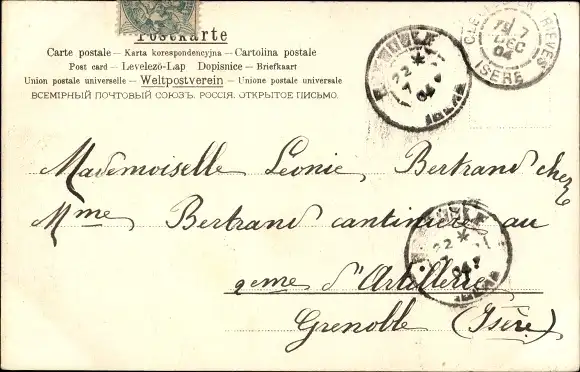 Postkarte
Carte postale — Karta korespondencyjna — Cartolina postale
Post card — Levelező-Lap Dopisnice — Briefkaart
Union postale universelle — Weltpostverein — Unione postale universale
ВСЕМІРНЫЙ ПОЧТОВЫЙ СОЮЗЪ. РОССІЯ. ОТКРЫТОЕ ПИСЬМО.
DEC
04
ISÈRE
22
04
Mademoiselle Léonie Bertrand chez
Mme Bertrand cantinière au
22
04
2eme d'Artillerie
Grenoble (Isère)